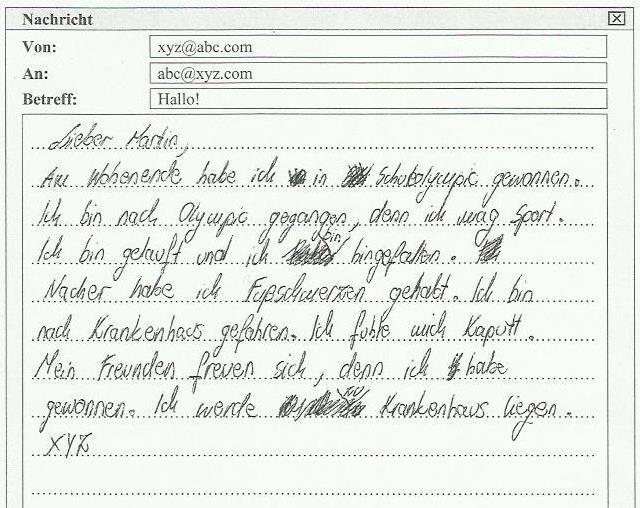 Nachricht
Von: xyz@abc.com
An: abc@xyz.com
Betreff: Hallo!
Lieber Martin,
Am Wohenende habe ich in Schulolympic gewonnen.
Ich bin nach Olympic gegangen, denn ich mag Sport.
Ich bin gelauft und ich bin hingefallen.
Nacher habe ich Fußschwerzen gehabt. Ich bin
nach Krankenhaus gefahren. Ich fühle mich Kaputt.
Mein Freunden freuen sich, denn ich habe
gewonnen. Ich werde Krankenhaus liegen.
XYZ